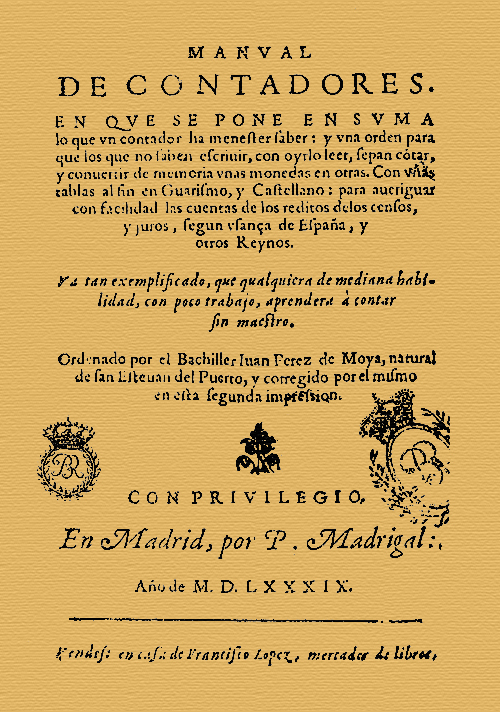 MANVAL
DE CONTADORES.
EN QVE SE PONE EN SVMA
lo que vn contador ha meneſter ſaber: y vna orden para
que los que no ſaben eſcriuir, con oyrlo leer, ſepan cótar,
y conuertir de memoria vnas monedas en otras. Con vnas
tablas al fin en Guariſmo, y Caſtellano: para aueriguar
con facilidad las cuentas de los reditos delos cenſos,
y juros, ſegun vſança de Eſpaña, y
otros Reynos.
Va tan exemplificado, que qualquiera de mediana habi-
lidad, con poco trabajo, aprendera à contar
ſin maeſtro.
Ordenado por el Bachiller Iuan Perez de Moya, natural
de ſan Eſteuan del Puerto, y corregido por el miſmo
en eſta ſegunda impreſsion.
BR
CON PRIVILEGIO.
En Madrid, por P. Madrigal:.
Año de M. D. LXXXIX.
Vendeſe en caſa de Franciſco Lopez, mercader de libros.